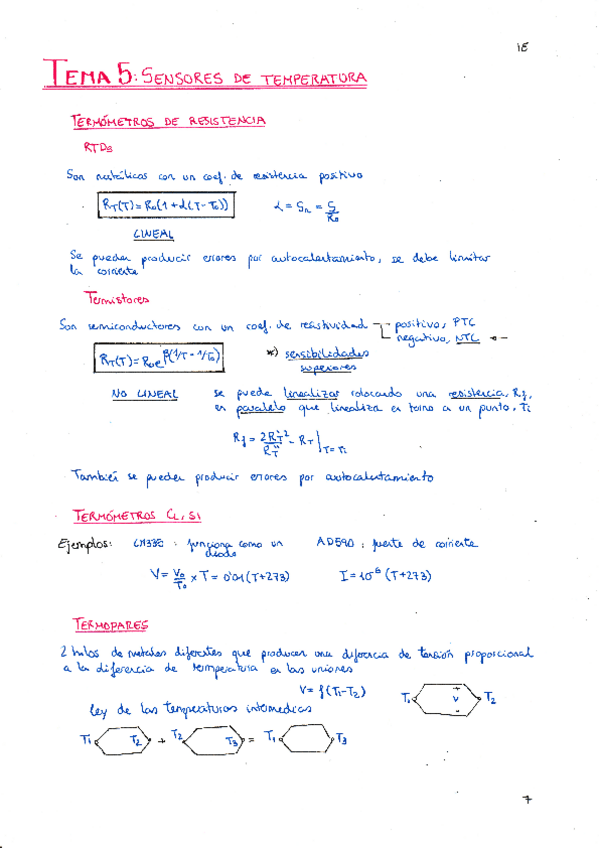 IE
TEMA 5: SENSORES DE TEMPERATURA
TERMÓMETROS DE RESISTENCIA
RTDs
Son metálicos con un coef. de resistencia positivo
R_T(T) = R_0(1+α(T-T_0)) α = S_R = S/R_0
LINEAL
Se pueden producir errores por autocalentamiento, se debe limitar
la corriente
Termistores
Son semiconductores con un coef. de resistividad positivo, PTC
negativo, NTC ←
R_T(T) = R_0 e^β(1/T - 1/T_0) *) sensibilidades
superiores
NO LINEAL se puede linealizar colocando una resistencia, R_f,
en paralelo que linealiza en torno a un punto, T_i
R_f = 2R_T'^2/R_T'' - R_T |T=T_i
También se pueden producir errores por autocalentamiento
TERMÓMETROS C.I., Si
Ejemplos: LM335 : funciona como un diodo AD590 : fuente de corriente
V = V_0/T_0 × T = 0'01(T+273) I = 10^-6 (T+273)
TERMOPARES
2 hilos de metales diferentes que producen una diferencia de tensión proporcional
a la diferencia de temperatura en las uniones
V = f(T_1-T_2) T_1 + V - T_2
Ley de las temperaturas intermedias
T_1 T_2 + T_2 T_3 = T_1 T_3
7